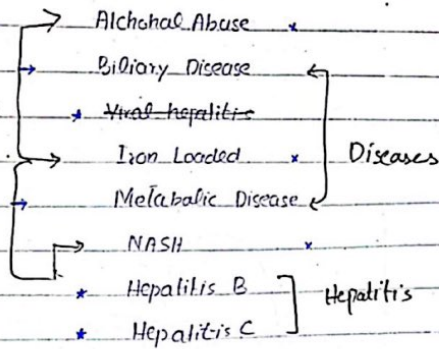 Alchohal Abuse
Biliary Disease
Viral hepatitis
Iron Loaded
Diseases
Metabalic Disease
NASH
Hepatitis B
Hepatitis
Hepatitis C